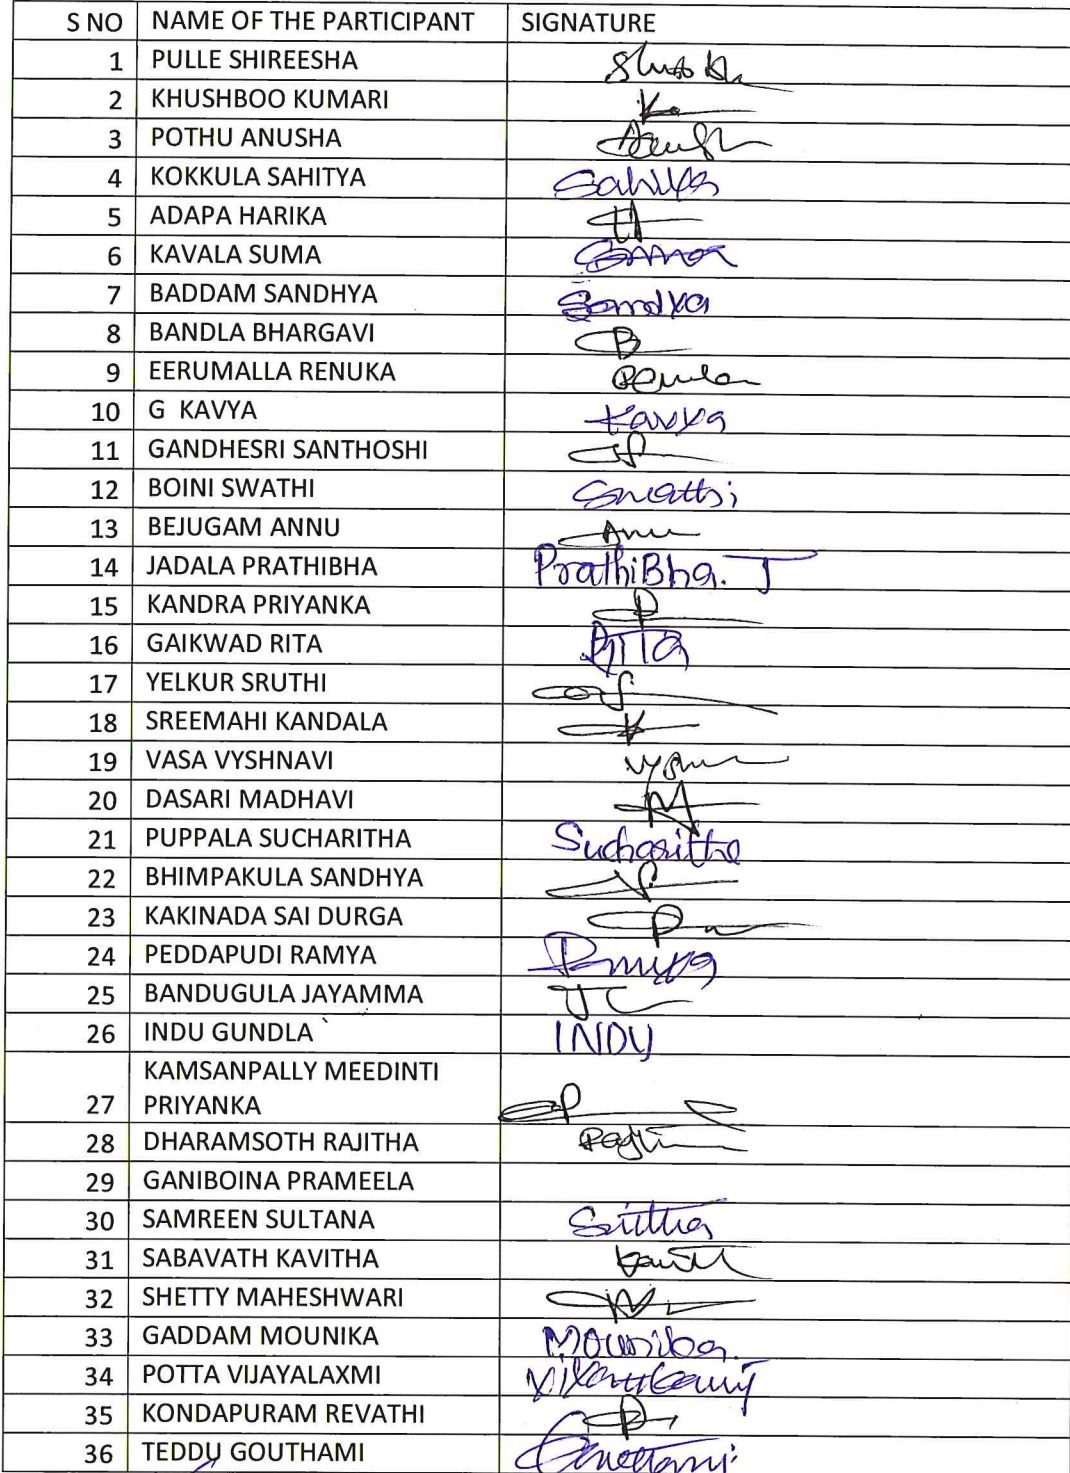 S NO NAME OF THE PARTICIPANT SIGNATURE
1 PULLE SHIREESHA
2 KHUSHBOO KUMARI
3 POTHU ANUSHA
4 KOKKULA SAHITYA
5 ADAPA HARIKA
6 KAVALA SUMA
7 BADDAM SANDHYA
8 BANDLA BHARGAVI
9 EERUMALLA RENUKA
10 G KAVYA Kavya
11 GANDHESRI SANTHOSHI
12 BOINI SWATHI Swathi
13 BEJUGAM ANNU Anu
14 JADALA PRATHIBHA PrathiBha. J
15 KANDRA PRIYANKA P
16 GAIKWAD RITA RITA
17 YELKUR SRUTHI
18 SREEMAHI KANDALA K
19 VASA VYSHNAVI
20 DASARI MADHAVI M
21 PUPPALA SUCHARITHA Sucharitha
22 BHIMPAKULA SANDHYA
23 KAKINADA SAI DURGA
24 PEDDAPUDI RAMYA
25 BANDUGULA JAYAMMA
26 INDU GUNDLA INDU
KAMSANPALLY MEEDINTI
27 PRIYANKA
28 DHARAMSOTH RAJITHA
29 GANIBOINA PRAMEELA
30 SAMREEN SULTANA
31 SABAVATH KAVITHA
32 SHETTY MAHESHWARI
33 GADDAM MOUNIKA Mounika.
34 POTTA VIJAYALAXMI
35 KONDAPURAM REVATHI
36 TEDDU GOUTHAMI Gouthami